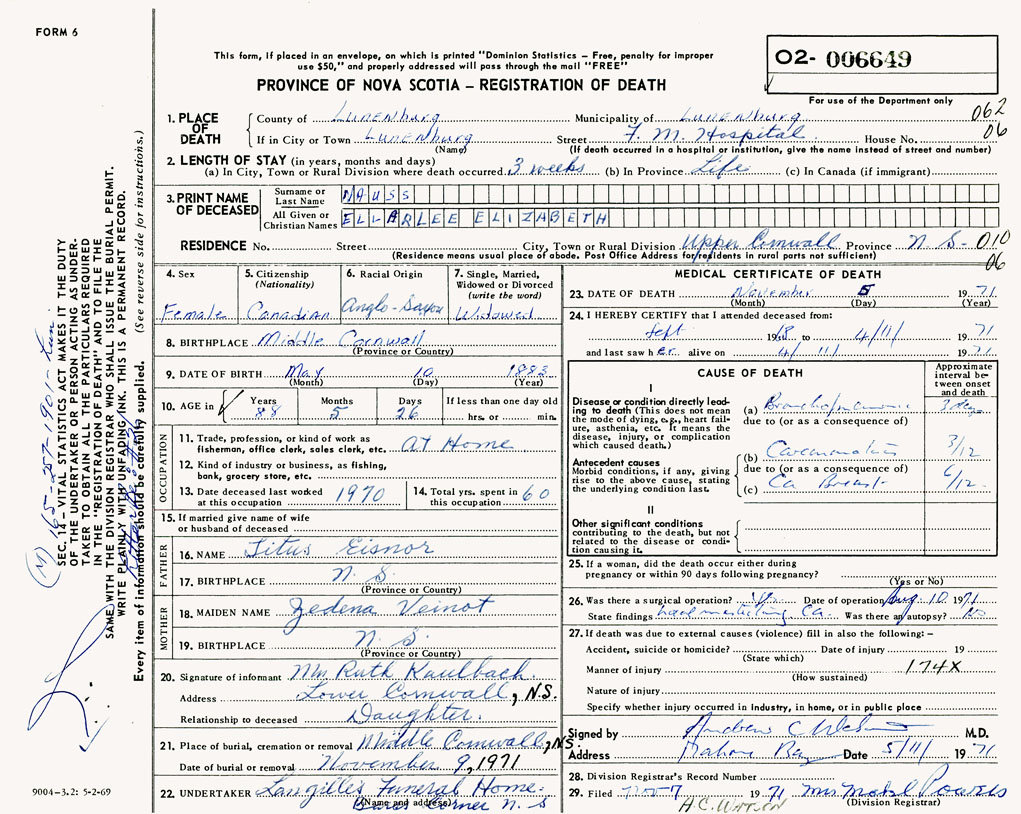 FORM 6
This form, if placed in an envelope, on which is printed "Dominion Statistics – Free, penalty for improper
use $50," and properly addressed will pass through the mail "FREE"
O2- 006649
For use of the Department only
PROVINCE OF NOVA SCOTIA – REGISTRATION OF DEATH
1. PLACE OF DEATH
County of Lunenburg Municipality of Lunenburg 062
If in City or Town Lunenburg Street F. M. Hospital House No. 06
(Name) (If death occurred in a hospital or institution, give the name instead of street and number)
2. LENGTH OF STAY (in years, months and days)
(a) In City, Town or Rural Division where death occurred 3 weeks (b) In Province Life (c) In Canada (if immigrant)
3. PRINT NAME OF DECEASED
Surname or Last Name NAUSS
All Given or Christian Names ELLARLEE ELIZABETH
RESIDENCE No. Street City, Town or Rural Division Upper Cornwall Province N. S- 010
(Residence means usual place of abode. Post Office Address for residents in rural parts not sufficient) 06
4. Sex Female
5. Citizenship (Nationality) Canadian
6. Racial Origin Anglo-Saxon
7. Single, Married, Widowed or Divorced (write the word) Widowed
8. BIRTHPLACE Middle Cornwall
(Province or Country)
9. DATE OF BIRTH May 10 1883
(Month) (Day) (Year)
10. AGE in Years 88 Months 5 Days 26 If less than one day old
hrs. or min.
OCCUPATION
11. Trade, profession, or kind of work as
fisherman, office clerk, sales clerk, etc. At Home
12. Kind of industry or business, as fishing,
bank, grocery store, etc.
13. Date deceased last worked at this occupation 1970
14. Total yrs. spent in this occupation 60
15. If married give name of wife
or husband of deceased
FATHER
16. NAME Titus Eisnor
17. BIRTHPLACE N. S.
(Province or Country)
MOTHER
18. MAIDEN NAME Zedena Veinot
19. BIRTHPLACE N. S.
(Province or Country)
20. Signature of informant Mrs Ruth Kaulbach.
Address Lower Cornwall, N.S.
Relationship to deceased Daughter.
21. Place of burial, cremation or removal Middle Cornwall, N.S.
Date of burial or removal November 9, 1971
22. UNDERTAKER Langille's Funeral Home.
(Name and address) Corner N. S
MEDICAL CERTIFICATE OF DEATH
23. DATE OF DEATH November 5 1971
(Month) (Day) (Year)
24. I HEREBY CERTIFY that I attended deceased from:
Sept 1968 to 4/11 1971
and last saw her alive on 4/11 1971
CAUSE OF DEATH
Approximate interval between onset and death
I
Disease or condition directly leading to death (This does not mean the mode of dying, e.g., heart failure, asthenia, etc. It means the disease, injury, or complication which caused death.)
(a) Bronchopneumonia 3 days
due to (or as a consequence of)
Antecedent causes
Morbid conditions, if any, giving rise to the above cause, stating the underlying condition last.
(b) 3/12
due to (or as a consequence of)
(c) Ca Breast /12
II
Other significant conditions contributing to the death, but not related to the disease or condition causing it.
25. If a woman, did the death occur either during
pregnancy or within 90 days following pregnancy?
(Yes or No)
26. Was there a surgical operation? Date of operation Aug 10 1971
State findings Ca. Was there an autopsy? No
27. If death was due to external causes (violence) fill in also the following:–
Accident, suicide or homicide? Date of injury 19
(State which)
Manner of injury 174X
(How sustained)
Nature of injury
Specify whether injury occurred in industry, in home, or in public place
Signed by Andrew C M.D.
Address Mahone Bay Date 5/11/ 1971
28. Division Registrar's Record Number
29. Filed Nov 7 1971 Mrs Mabel Powers
A.C. WATSON (Division Registrar)
9004-3.2: 5-2-69
(M) 165-257-1901-Lun.
SEC. 14 – VITAL STATISTICS ACT MAKES IT THE DUTY
OF THE UNDERTAKER OR PERSON ACTING AS UNDERTAKER
TO OBTAIN ALL THE PARTICULARS REQUIRED
IN THE "REGISTRATION OF DEATH" AND TO FILE THE
SAME WITH THE DIVISION REGISTRAR WHO SHALL ISSUE THE BURIAL PERMIT.
WRITE PLAINLY WITH UNFADING INK. THIS IS A PERMANENT RECORD.
Every item of information should be carefully supplied. (See reverse side for instructions.)